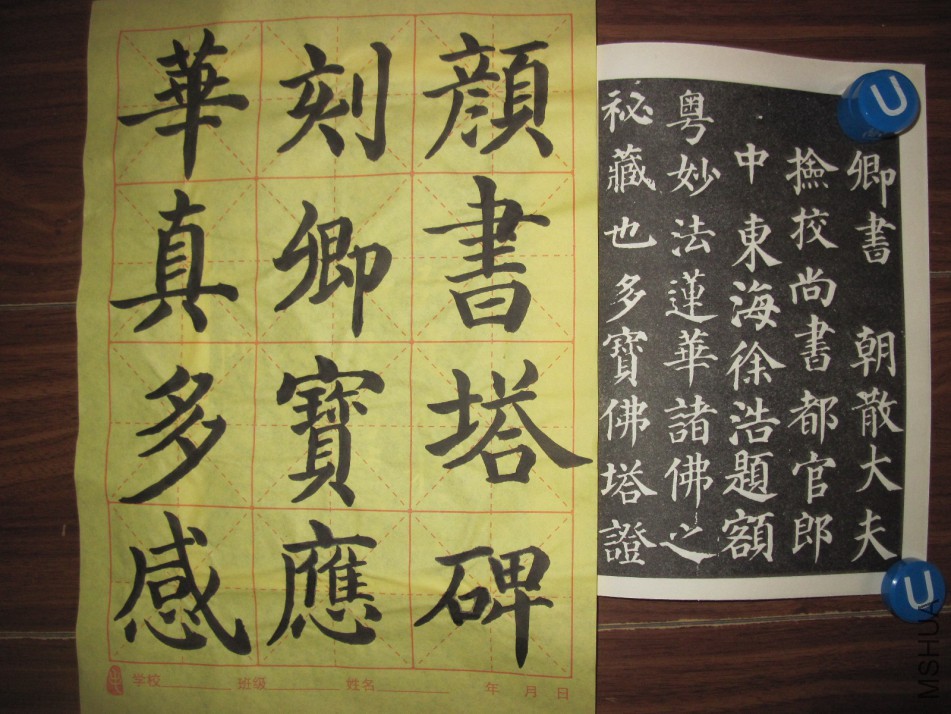 顔書塔碑
刻卿寶應
華真多感
学校 班级 姓名 年 月 日
卿書 朝散大夫
撿校尚書都官郎
中 東海徐浩題額
粤妙法蓮華諸佛之
祕藏也多寶佛塔證
U
U
MSHUA